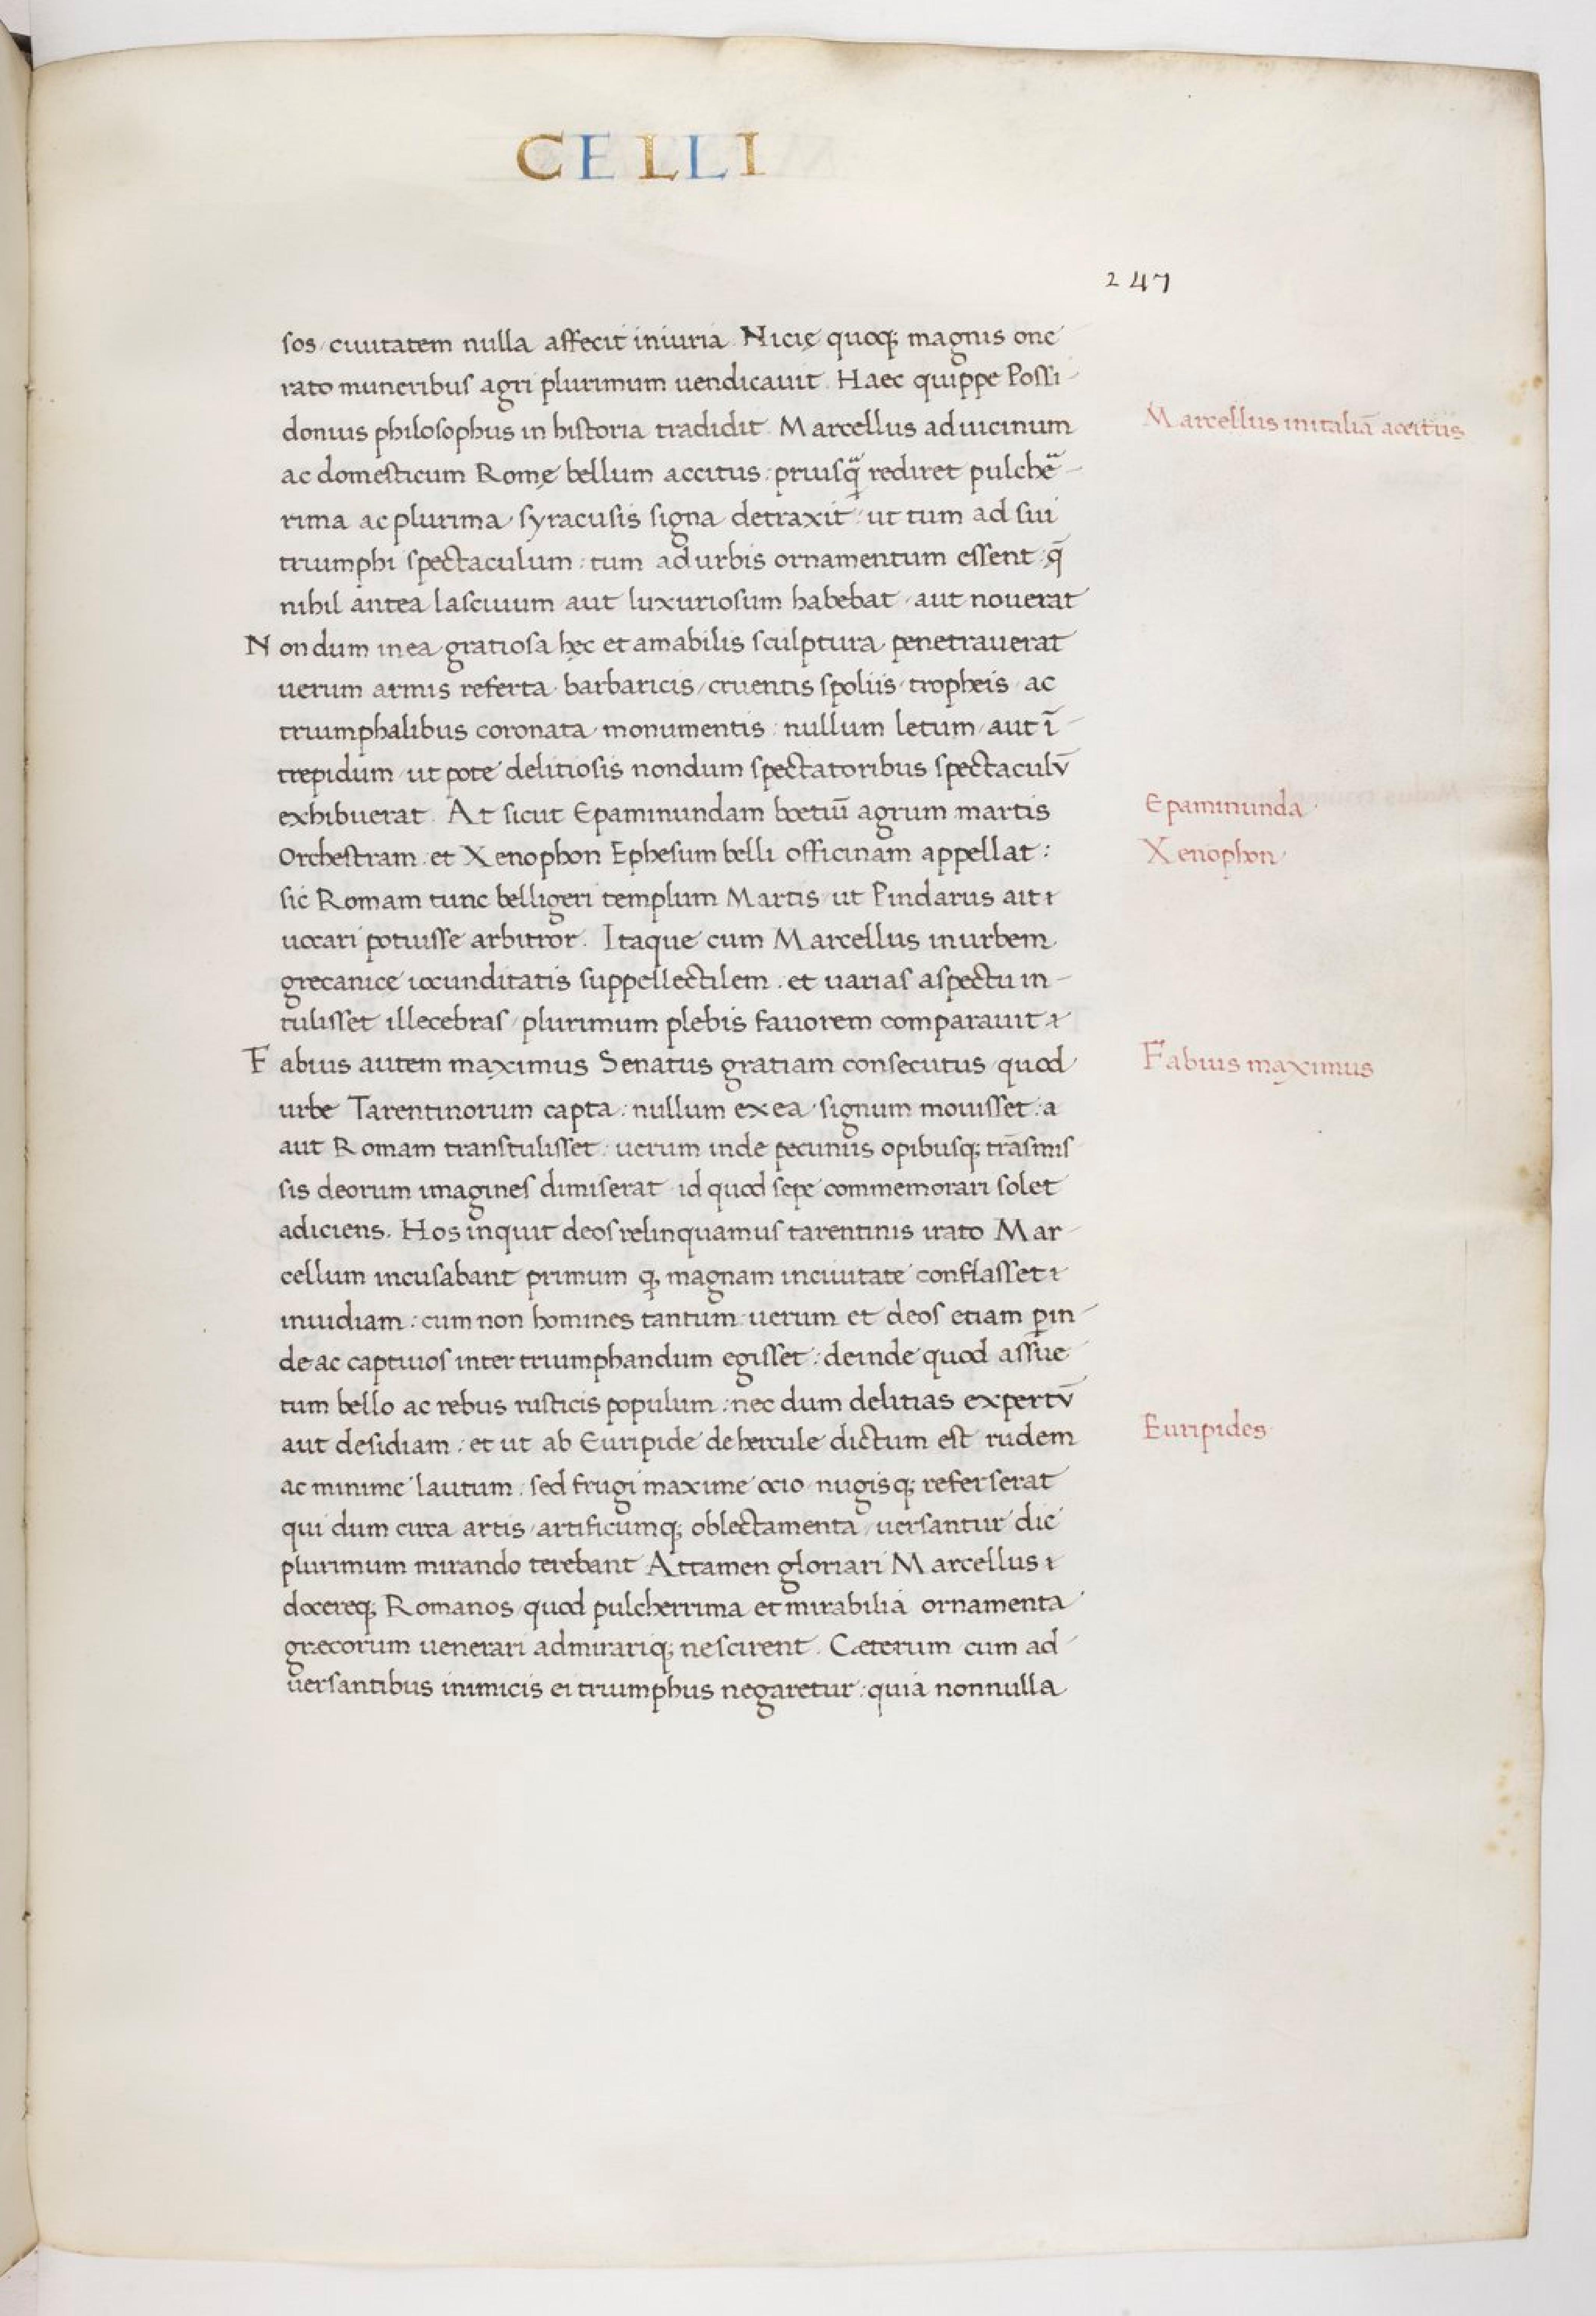 CELLI
247
sos / ciuitatem nulla affecit iniuria. Nicię quoq; magnis one
rato muneribus agri plurimum uendicauit. Haec quippe Possi-
donius philosophus in historia tradidit. Marcellus ad uicinum
Marcellus in italiā accitus
ac domesticum Romę bellum accitus: priusq̄ rediret pulchē-
rima ac plurima syracusis signa detraxit: ut tum ad sui
triumphi spectaculum: tum ad urbis ornamentum essent: q̄
nihil antea lasciuum aut luxuriosum habebat / aut nouerat
Nondum in ea gratiosa hęc et amabilis sculptura penetrauerat
uerum armis referta barbaricis / cruentis spoliis tropheis ac
triumphalibus coronata monumentis: nullum letum / aut ī-
trepidum / ut pote delitiosis nondum spectatoribus spectaculū
exhibuerat. At sicut Epaminundam boetiū agrum martis
Epaminunda
Orchestram: et Xenophon Ephesum belli officinam appellat:
Xenophon
sic Romam tunc belligeri templum Martis ut Pindarus ait
uocari potuisse arbitror. Itaque cum Marcellus in urbem
grecanicę iocunditatis suppellectilem: et uarias aspectu in-
tulisset illecebras / plurimum plebis fauorem comparauit
Fabius autem maximus Senatus gratiam consecutus quod
Fabius maximus
urbe Tarentinorum capta: nullum ex ea signum mouisset: a
aut Romam transtulisset: uerum inde pecuniis opibusq; trāsmis
sis deorum imagines dimiserat id quod sepe commemorari solet
adiciens. Hos inquit deos relinquamus tarentinis irato Mar-
cellum incusabant primum q; magnam in ciuitate conflasset
inuidiam: cum non homines tantum uerum et deos etiam ꝑin-
de ac captiuos inter triumphandum egisset: deinde quod assue
tum bello ac rebus rusticis populum: nec dum delitias expertū
aut desidiam: et ut ab Euripide de hercule dictum est rudem
Euripides
ac minime lautum: sed frugi maxime ocio nugisq; referserat
qui dum circa artis / artificumq; oblectamenta / uersantur die
plurimum mirando terebant Attamen gloriari Marcellus
docereq; Romanos / quod pulcherrima et mirabilia ornamenta
græcorum uenerari admirariq; nescirent. Cæterum cum ad
uersantibus inimicis ei triumphus negaretur: quia nonnulla